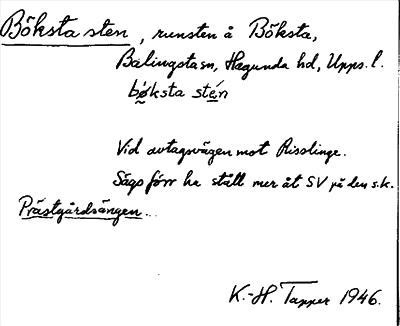 Böksta sten, runsten å Böksta,
Balingsta sn, Hagunda hd, Upps. l.
bø̀ksta stén
Vid avtagsvägen mot Risslinge.
Sägs förr ha stått mer åt SV på den s.k.
Prästgårdsängen...
K.-H. Tapper 1946.